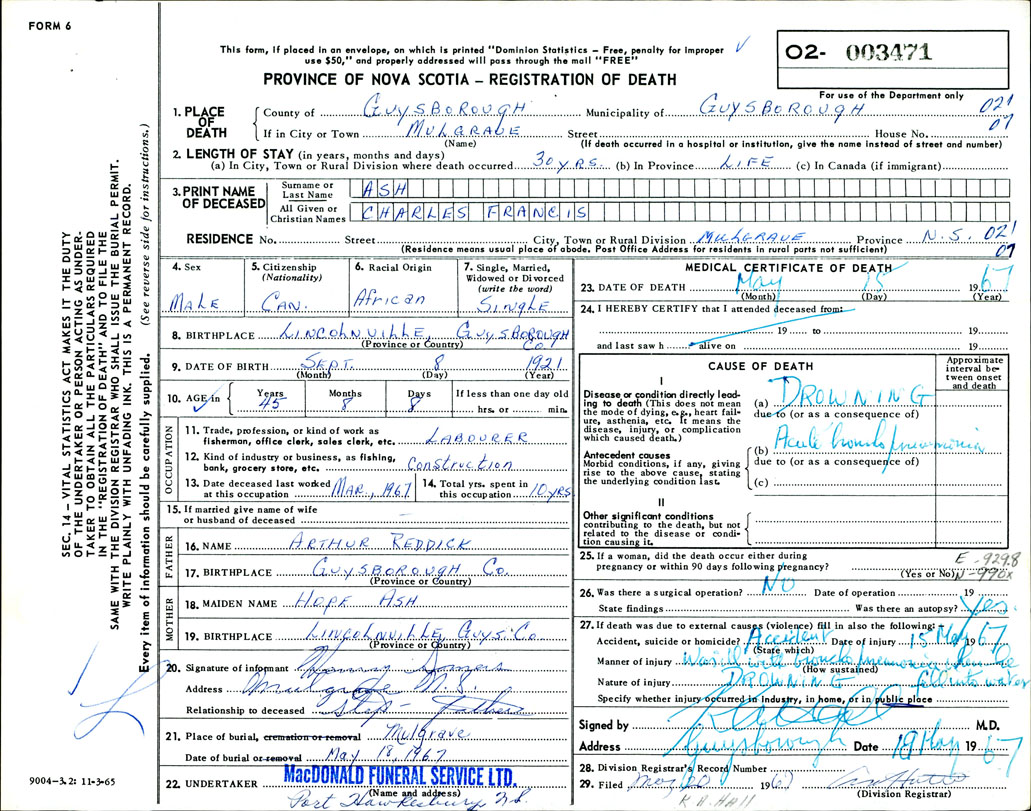 FORM 6
This form, if placed in an envelope, on which is printed "Dominion Statistics – Free, penalty for improper
use $50," and properly addressed will pass through the mail "FREE"
PROVINCE OF NOVA SCOTIA – REGISTRATION OF DEATH
02- 003471
For use of the Department only
021
07
1. PLACE OF DEATH
County of GUYSBOROUGH Municipality of GUYSBOROUGH
If in City or Town MULGRAVE Street House No.
(Name) (If death occurred in a hospital or institution, give the name instead of street and number)
2. LENGTH OF STAY (in years, months and days)
(a) In City, Town or Rural Division where death occurred 30 YRS. (b) In Province LIFE (c) In Canada (if immigrant)
3. PRINT NAME OF DECEASED
Surname or Last Name ASH
All Given or Christian Names CHARLES FRANCIS
RESIDENCE No. Street City, Town or Rural Division MULGRAVE Province N.S. 021
(Residence means usual place of abode. Post Office Address for residents in rural parts not sufficient) 07
4. Sex MALE
5. Citizenship (Nationality) CAN.
6. Racial Origin African
7. Single, Married, Widowed or Divorced (write the word) SINGLE
8. BIRTHPLACE LINCOLNVILLE, GUYSBOROUGH Co
(Province or Country)
9. DATE OF BIRTH SEPT. 8 1921
(Month) (Day) (Year)
10. AGE in Years 45 Months 8 Days 8 If less than one day old hrs. or min.
OCCUPATION
11. Trade, profession, or kind of work as fisherman, office clerk, sales clerk, etc. LABOURER
12. Kind of industry or business, as fishing, bank, grocery store, etc. Construction
13. Date deceased last worked at this occupation MAR., 1967
14. Total yrs. spent in this occupation 10 YRS
15. If married give name of wife or husband of deceased –
FATHER
16. NAME ARTHUR REDDICK
17. BIRTHPLACE GUYSBOROUGH Co.
(Province or Country)
MOTHER
18. MAIDEN NAME HOPE ASH
19. BIRTHPLACE LINCOLNVILLE, GUYS. Co
(Province or Country)
20. Signature of informant
Address Mulgrave N.S
Relationship to deceased Step-Father
21. Place of burial, cremation or removal Mulgrave
Date of burial or removal May 18, 1967
22. UNDERTAKER MacDONALD FUNERAL SERVICE LTD.
(Name and address)
Port Hawkesbury N.S.
MEDICAL CERTIFICATE OF DEATH
23. DATE OF DEATH May 15 1967
(Month) (Day) (Year)
24. I HEREBY CERTIFY that I attended deceased from:
19 to 19
and last saw h alive on 19
CAUSE OF DEATH
Approximate interval between onset and death
I
Disease or condition directly leading to death (This does not mean the mode of dying, e.g., heart failure, asthenia, etc. It means the disease, injury, or complication which caused death.)
(a) DROWNING
due to (or as a consequence of)
Antecedent causes
Morbid conditions, if any, giving rise to the above cause, stating the underlying condition last.
(b) Acute broncho pneumonia
due to (or as a consequence of)
(c)
II
Other significant conditions contributing to the death, but not related to the disease or condition causing it.
25. If a woman, did the death occur either during pregnancy or within 90 days following pregnancy? (Yes or No)
E-929.8
N-990x
26. Was there a surgical operation? NO Date of operation 19
State findings Was there an autopsy? Yes.
27. If death was due to external causes (violence) fill in also the following:
Accident, suicide or homicide? Accident Date of injury 15 May 1967
(State which)
Manner of injury Was ill with broncho pneumonia when he
(How sustained)
Nature of injury DROWNING fell into water
Specify whether injury occurred in industry, in home, or in public place
Signed by M.D.
Address Guysborough Date 18 May 1967
28. Division Registrar's Record Number
29. Filed May 20 1967
(Division Registrar)
K.H. Hall
SEC. 14 – VITAL STATISTICS ACT MAKES IT THE DUTY
OF THE UNDERTAKER OR PERSON ACTING AS UNDER-
TAKER TO OBTAIN ALL THE PARTICULARS REQUIRED
IN THE "REGISTRATION OF DEATH" AND TO FILE THE
SAME WITH THE DIVISION REGISTRAR WHO SHALL ISSUE THE BURIAL PERMIT.
WRITE PLAINLY WITH UNFADING INK. THIS IS A PERMANENT RECORD.
Every item of information should be carefully supplied. (See reverse side for instructions.)
9004-3.2: 11-3-65